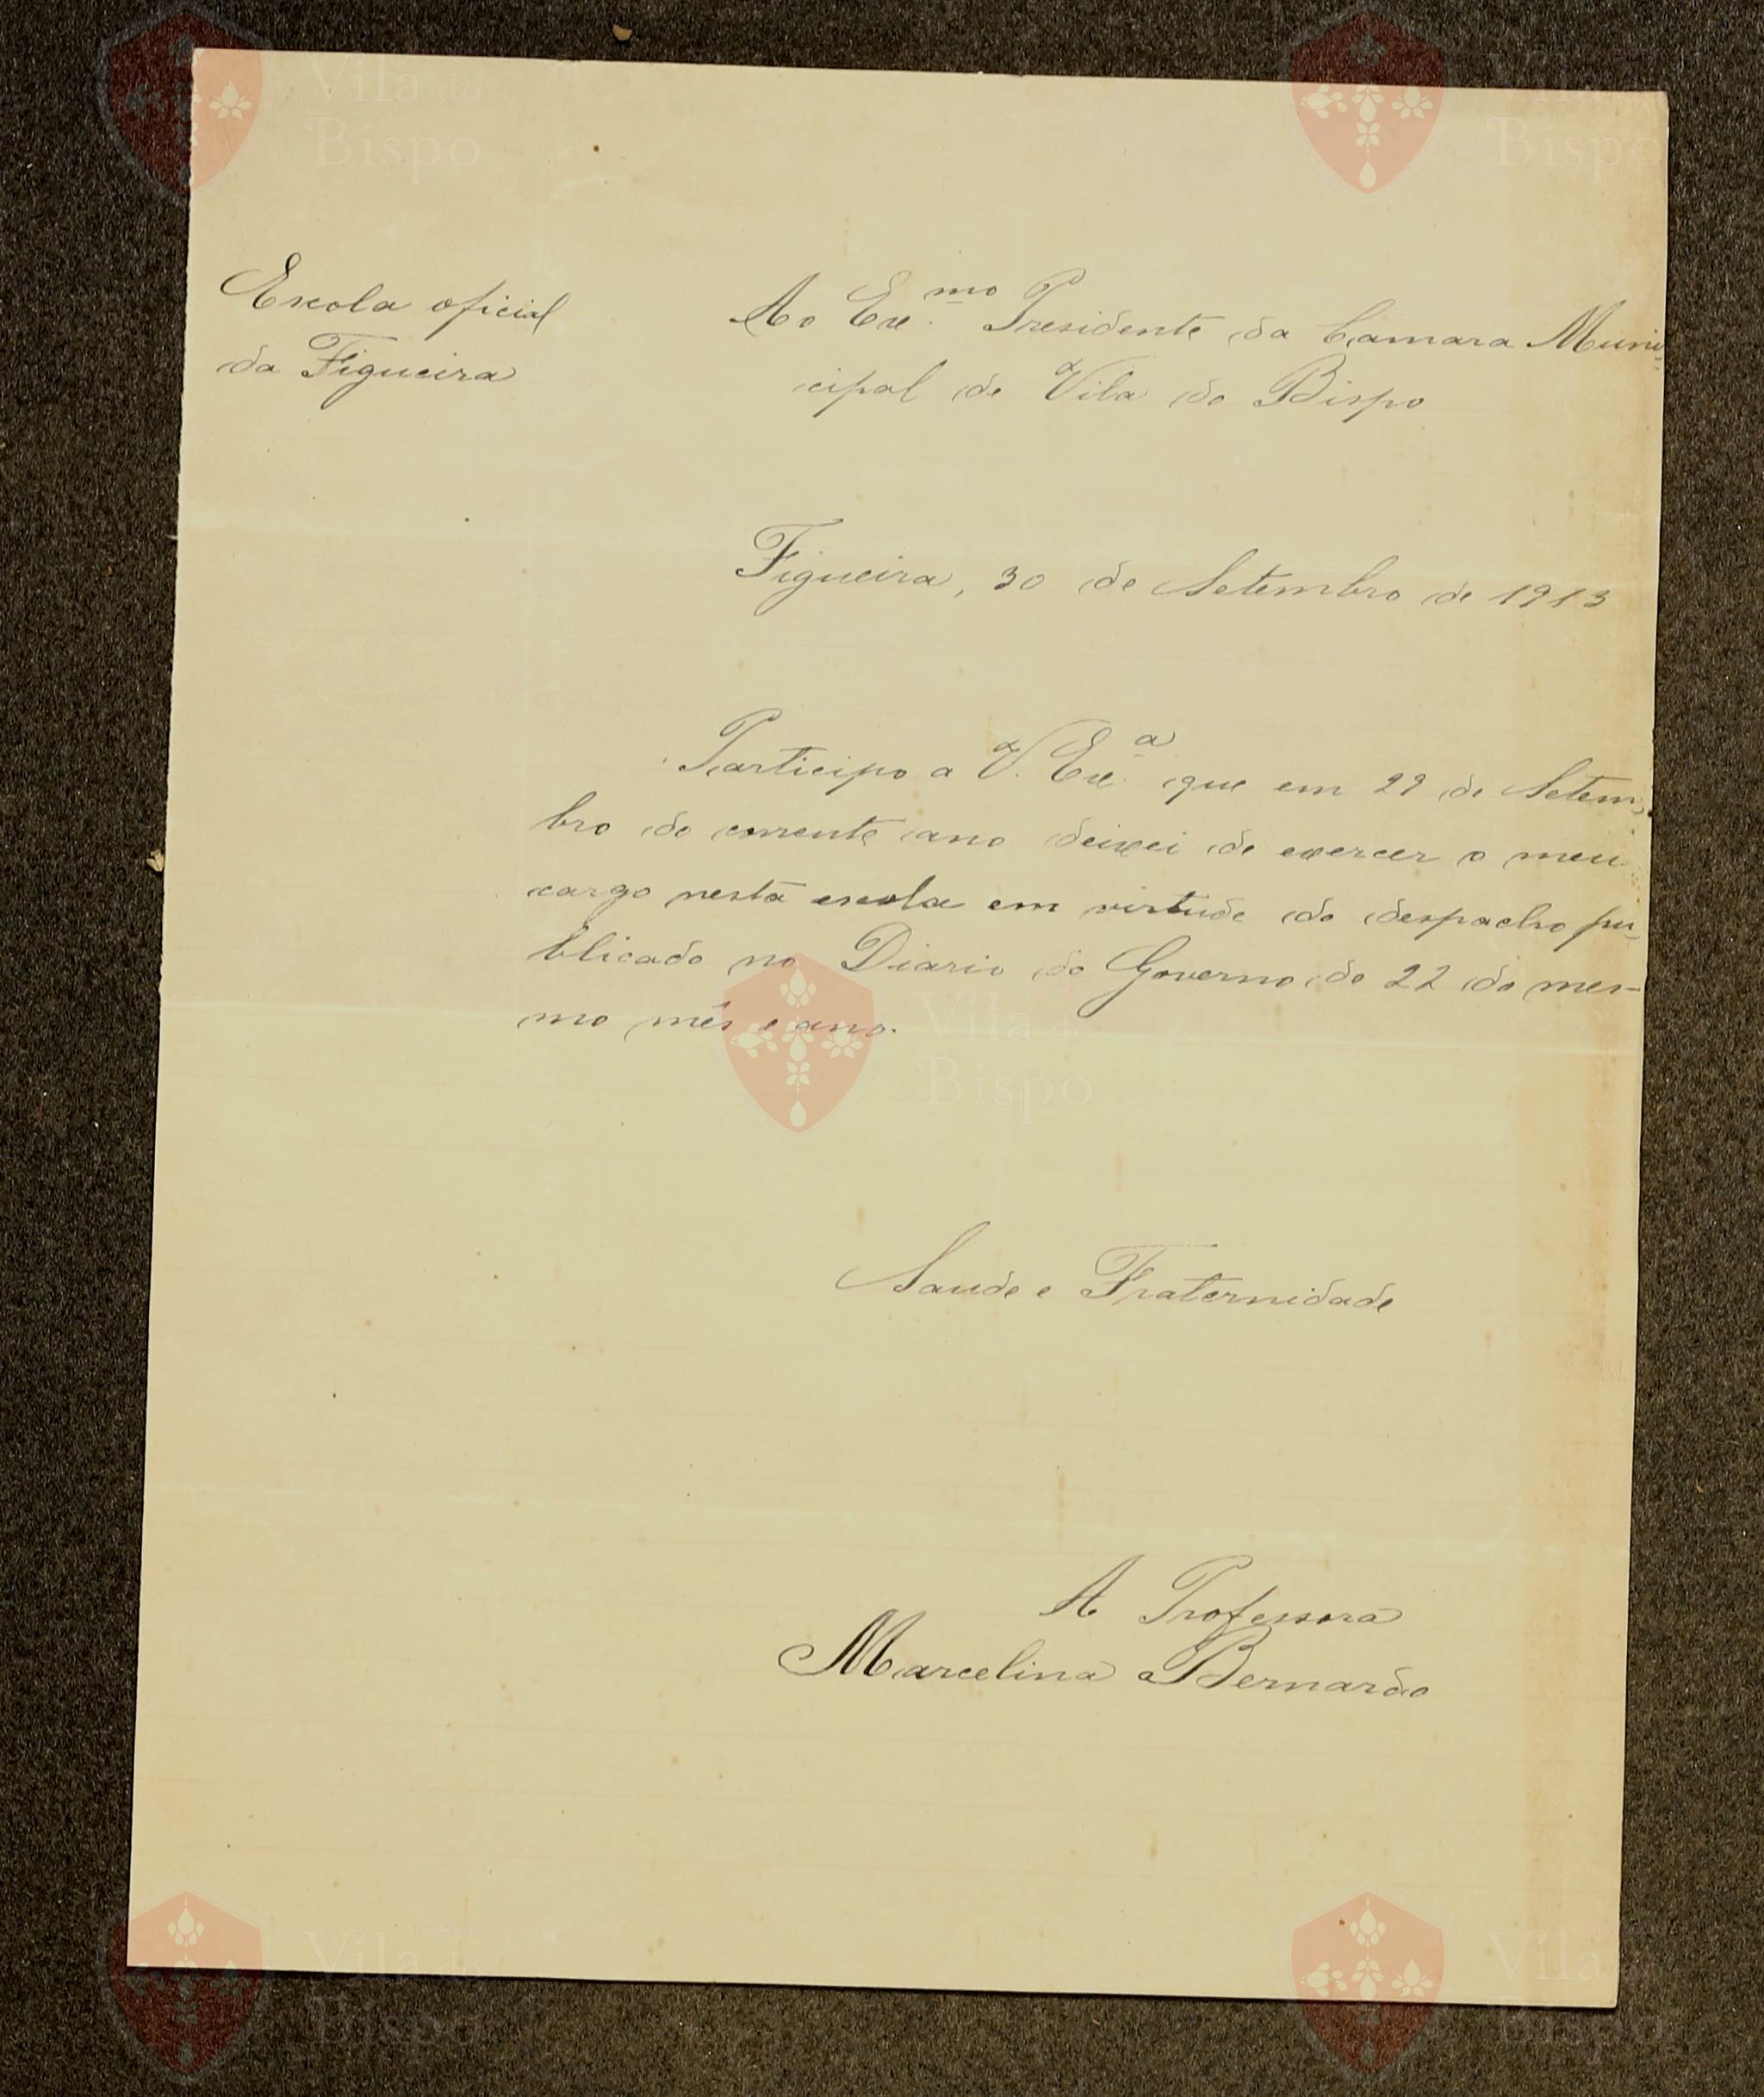 Escola oficial
da Figueira
Ao Exc.mo Presidente da Camara Muni-
cipal de Vila do Bispo
Figueira, 30 de Setembro de 1913
Participo a V. Exc.a que em 22 de Setem-
bro do corrente ano deixei de exercer o meu
cargo nesta escola em virtude do despacho pu-
blicado no Diario do Governo do 22 do mes-
mo mês e ano.
Saude e Fraternidade
A Professora
Marcelina Bernardo
Vila do
Bispo
Vila do
Bispo
Vila do
Bispo
Vila do
Bispo
Vila
Bispo